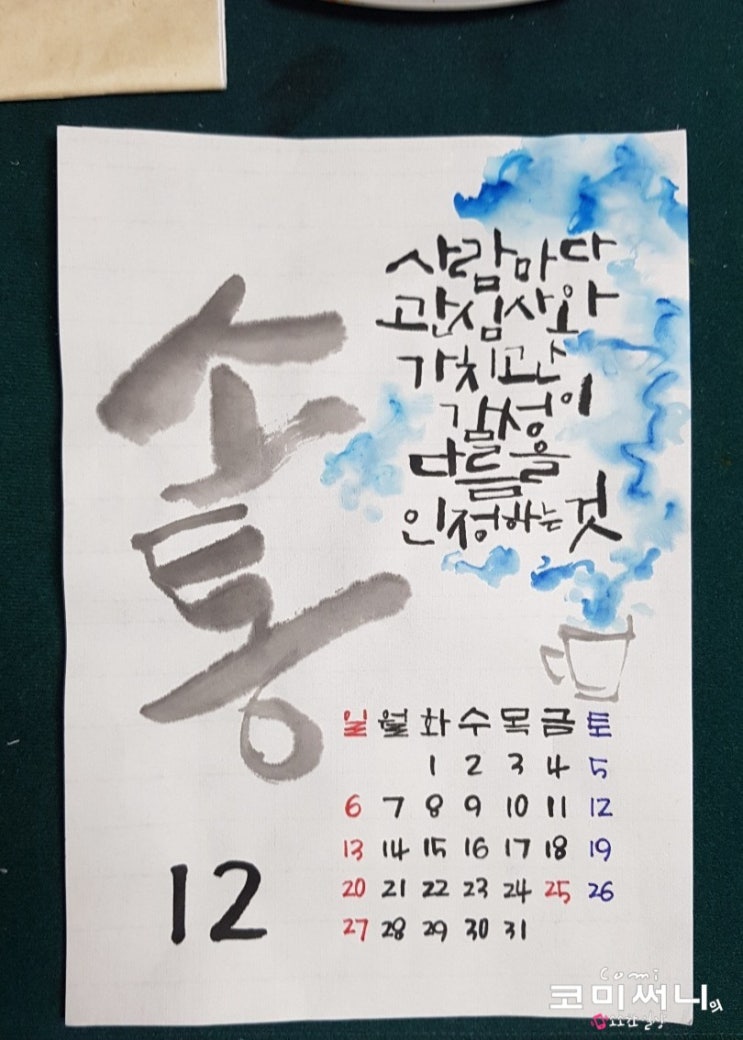 소통
사람마다
관심사와
가치관
감성이
다름을
인정하는 것
일 월 화 수 목 금 토
1 2 3 4 5
6 7 8 9 10 11 12
13 14 15 16 17 18 19
20 21 22 23 24 25 26
27 28 29 30 31
12
Comi
코미써니의